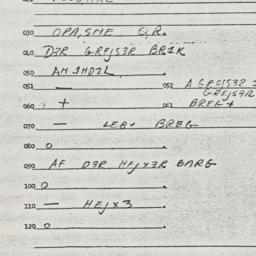 030 OPA, SME O,R.
040 D3R GREJS3R BR1K
050 AN JND2L
051 — 052 A GROISER
GREJS3R
060 + 061 BREG +
070 — LEB+ BREG
080 0
090 AF D3R HEJX3R BARG
100 0
110 — HEJX3
120 0